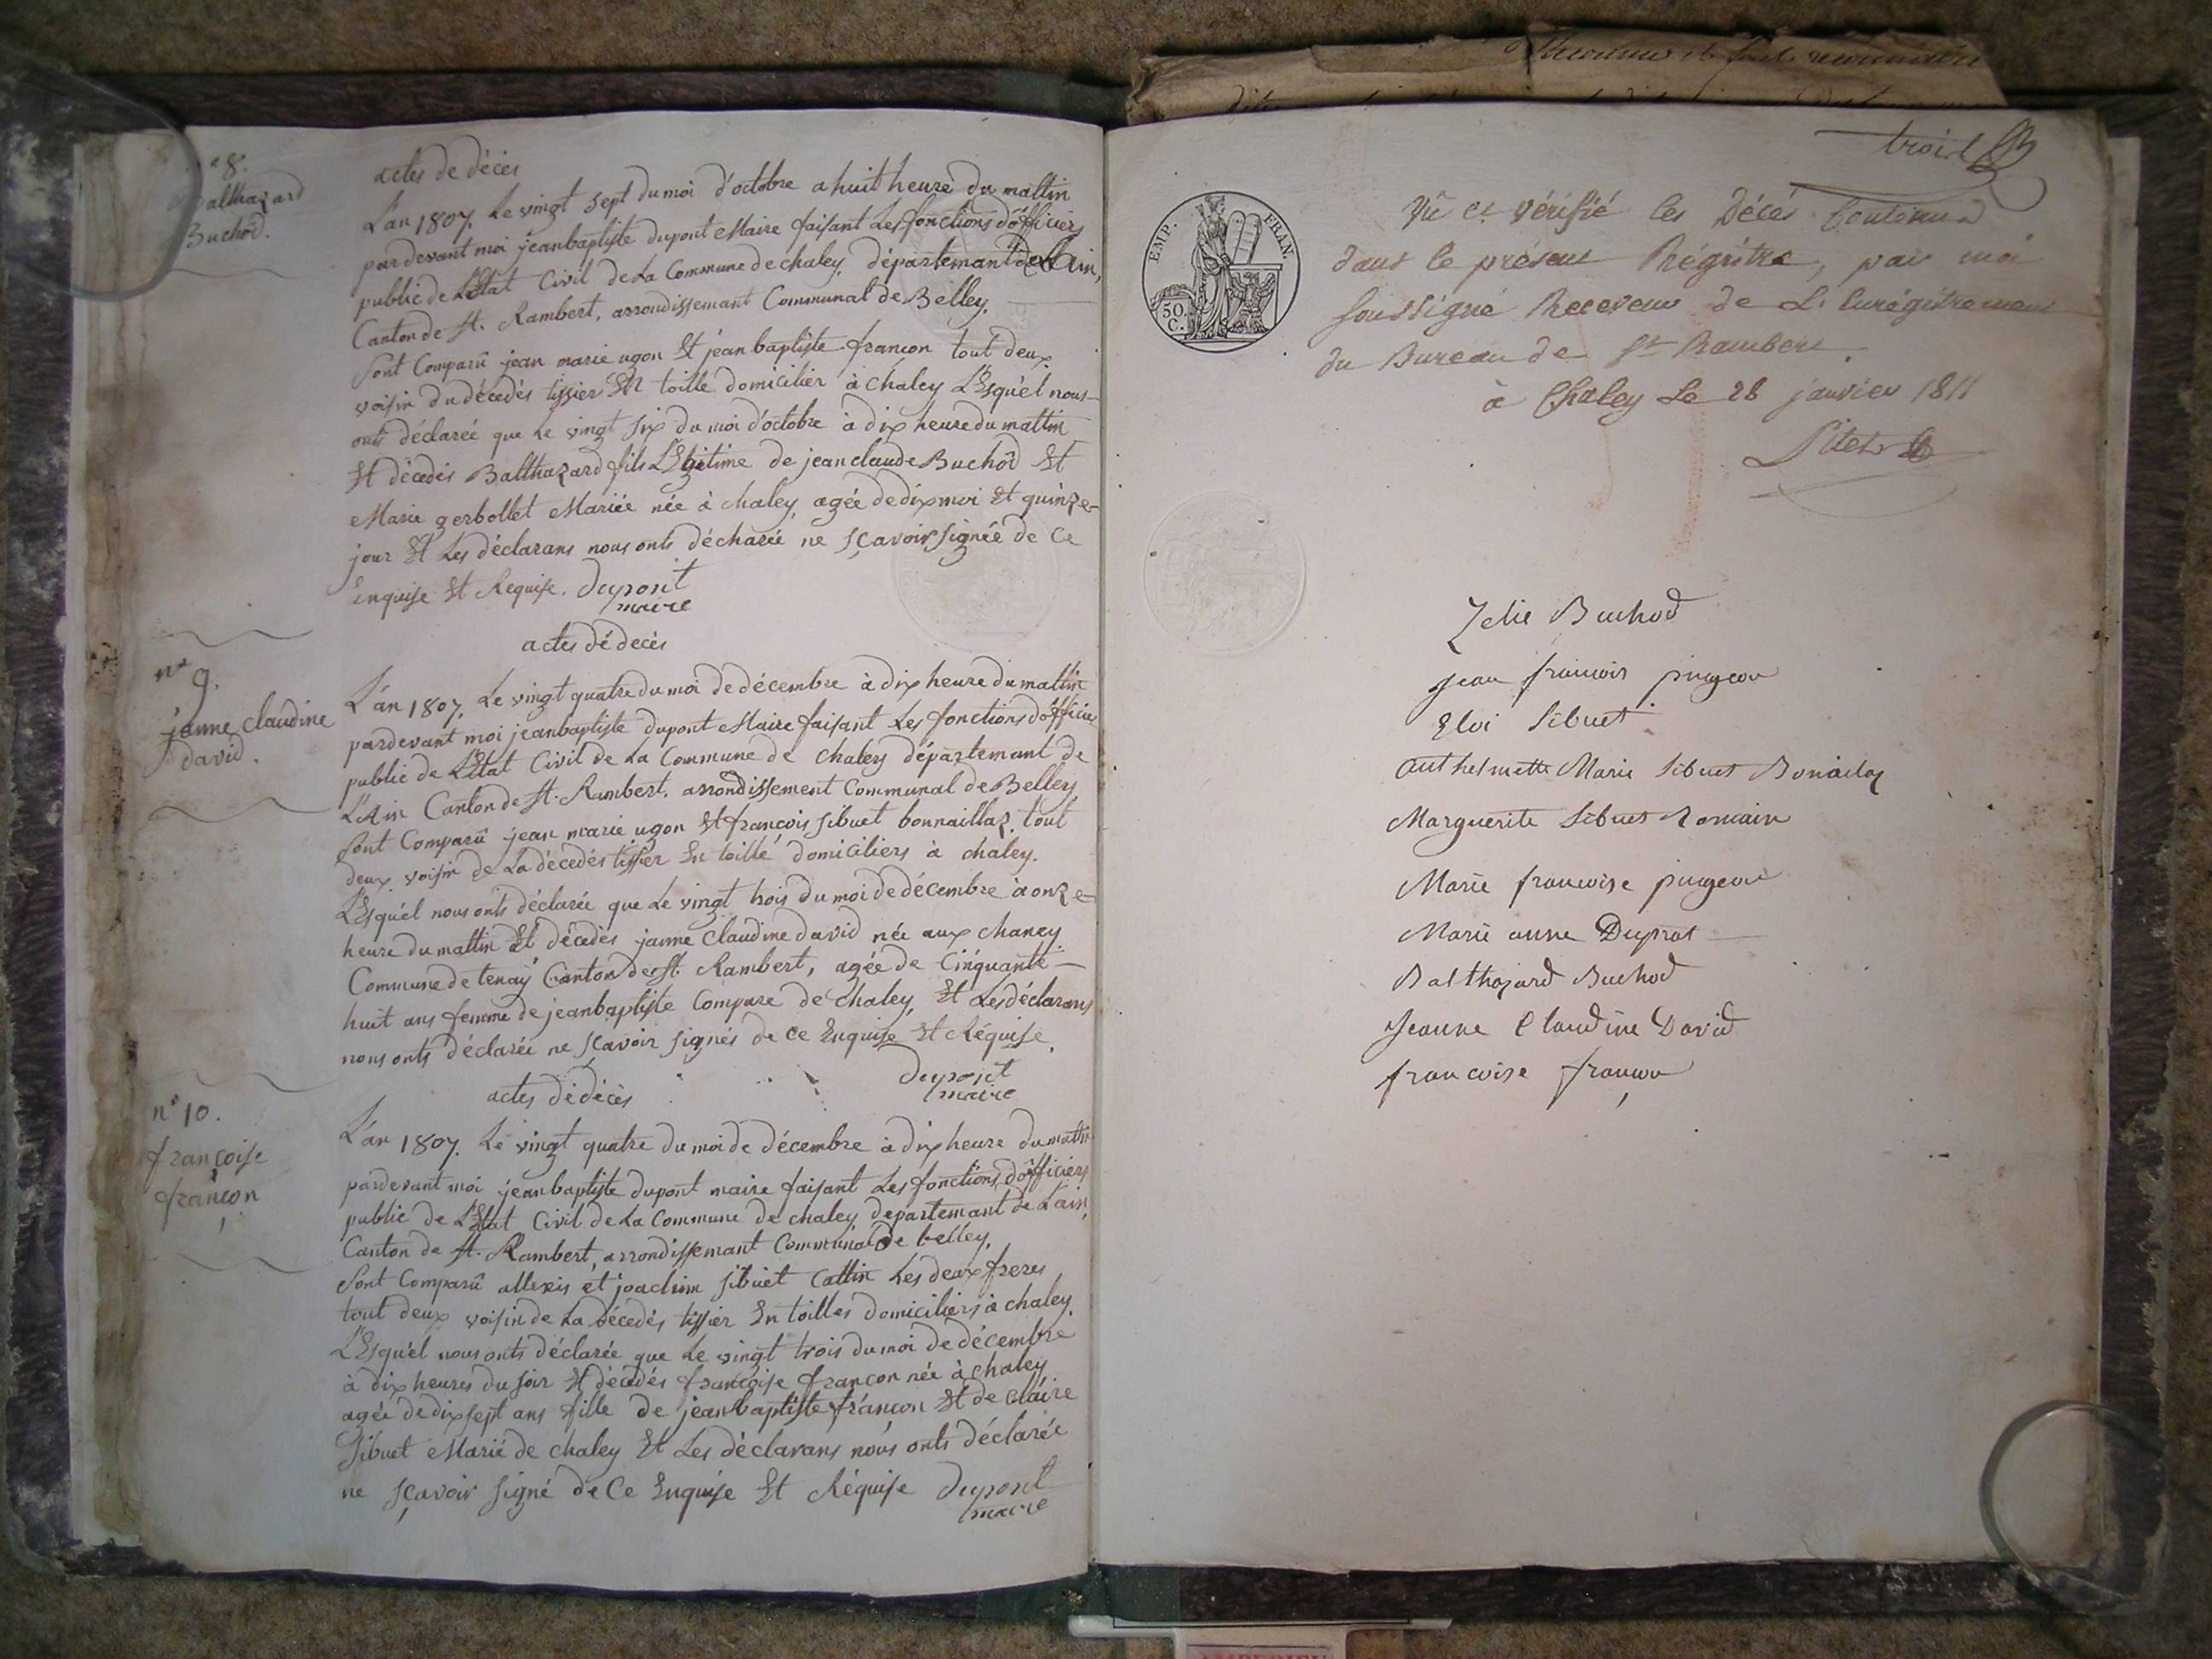 n° 8.
Balthazard
Buchôd.
actes de décès
L'an 1807. Le vingt sept du moi d'octobre a huit heure du mattin
pardevant moi jeanbaptiste dupont Maire faisant Les fonctions d'officiers
public de L'Etat Civil de La Commune de chaley, départemant de Lain,
Canton de St. Rambert, arrondissemant Communal de Belley.
Sont Comparû jean marie ugon Et jean baptiste françon tout deux
voisin du décedés tissier En toille domicilier à chaley L'Esquêl nous
onts déclarée que Le vingt six du moi d'octobre à dix heure du mattin
Et décedés Balthazard fils Légitime de jean claude Buchôd Et
Marie gerbollet Mariée née à chaley, agée de dix moi Et quinze
jour Et Les déclarans nous onts décharée ne sçavoir signée de Ce
Enquise Et Requise. dupont
maire
n° 9.
janne Claudine
david.
actes dé decès
L'an 1807. Le vingt quatre du moi de décembre à dix heure du mattin
pardevant moi jeanbaptiste dupont Maire faisant Les fonctions d'officier
public de L'Etat Civil de La Commune de chaley départemant de
L'Ain Canton de St. Rambert. arrondissement Communal de Belley
Sont Comparû jean marie ugon Et françois sibuet bonnaillaz. tout
deux voisin de La décedés tissier En toille domiciliers à chaley.
L'Esquêl nous onts déclarée que Le vingt trois du moi de décembre à onze
heure du mattin Et décedés janne Claudine david née aux chaney
Commune de tenay Canton de St. Rambert, agée de Cinquante
huit ans femme de jeanbaptiste Compare de chaley, Et Les déclarans
nous onts déclarée ne sçavoir signés de ce Enquise Et Réquise.
dupont
maire
n° 10.
françoise
françon
actes dé décès
L'an 1807. Le vingt quatre du moi de décembre à dix heure du mattin
pardevant moi jeanbaptiste dupont maire faisant Les fonctions d'officiers
public de L'Etat Civil de La Commune de chaley departemant de Lain,
Canton de St. Rambert, arrondissemant Communal de belley.
Sont Comparû allexis et joachim sibuet Cattin Les deux freres
tout deux voisin de La décedés tissier En toilles domiciliers à chaley.
L'Esquêl nous onts déclarée que Le vingt trois du moi de décembre
à dix heures du soir Et décedés françoise françon née à chaley
agée de dix sept ans fille de jeanbaptiste françon Et de Claire
Sibuet Marié de chaley Et Les déclarans nous onts déclarée
ne sçavoir signé de Ce Enquise Et Réquise dupont
maire
trois
EMP. FRAN.
50.
C.
Vû et vérifié les Décés Contenus
dans le présent Régitre, par moi
Soussigné Receveur de L'Enrégitrement
du Bureau de St Rambert.
à Chaley Le 28 janvier 1811
Zelie Buchod
Jean françois pingeon
Eloi Sibuet
Anthelmette Marie Sibuet Bonailaz
Marguerite Sibuet Romain
Marie françoise pingeon
Marie anne Duprat
Balthazard Buchod
Jeanne Claudine David
françoise françon